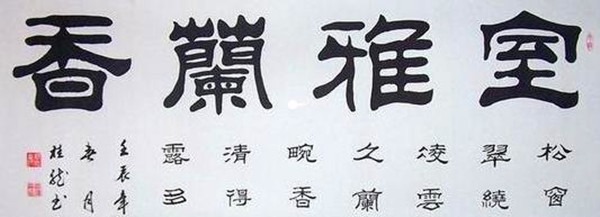 室雅蘭香
松窗
翠繞
凌雲
久蘭
畹香
清得
露多
壬辰年
春月
桂龙书